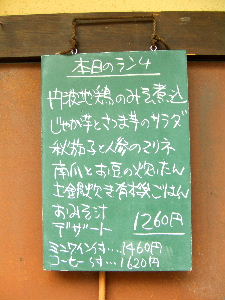 本日のランチ
丹波地鶏のみそ煮込
じゃが芋とさつま芋のサラダ
秋茄子と人参のマリネ
南瓜とお豆の炊いたん
土釜炊き有機ごはん
おみそ汁
デザート 1260円
ミニワイン付…1460円
コーヒー付…1620円